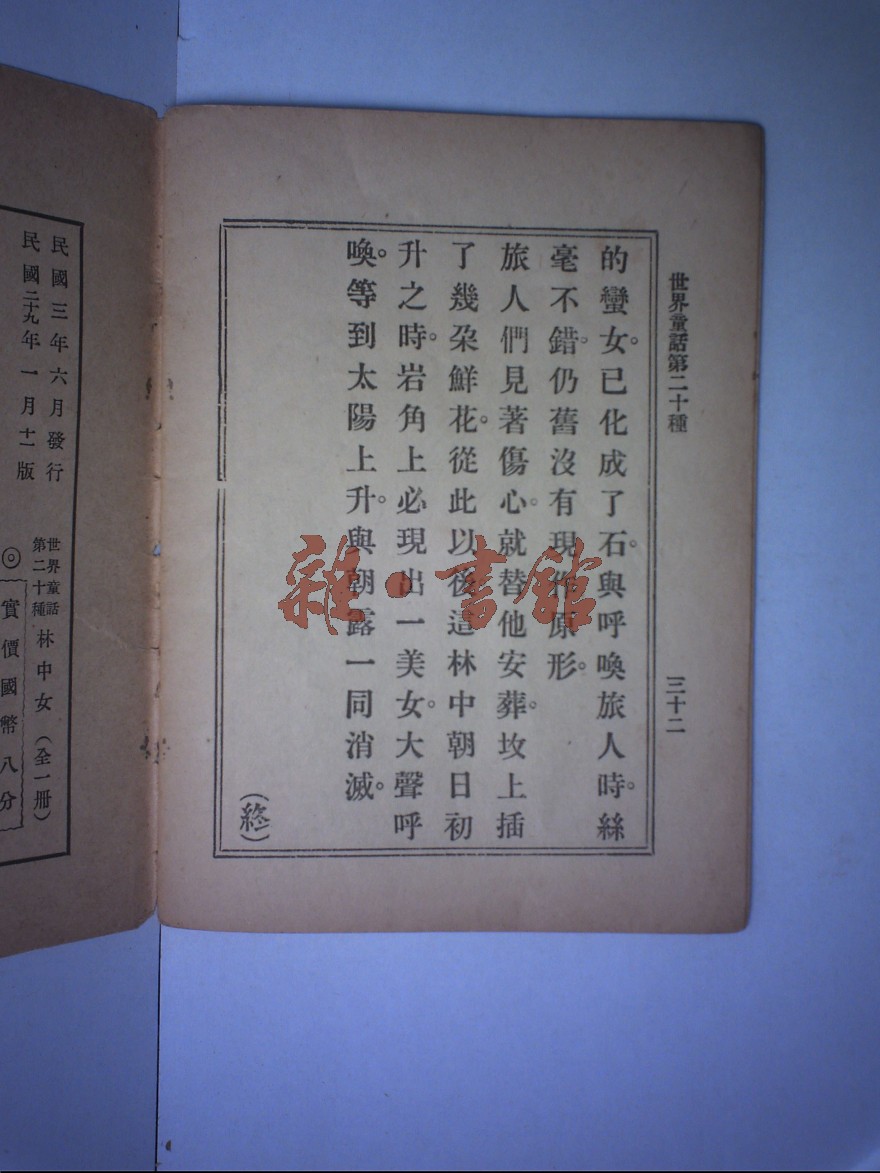 世界童話第二十種
三十二
的蠻女。已化成了石。與呼喚旅人時。絲
毫不錯。仍舊沒有現作原形。
旅人們見著傷心。就替他安葬。坟上插
了幾朶鮮花。從此以後這林中朝日初
升之時。岩角上必現出一美女。大聲呼
喚。等到太陽上升。與朝露一同消滅。
(終)
雜·書館
民國三年六月發行
民國二十九年一月十一版
世界童話
第二十種
林中女(全一冊)
◎實價國幣八分